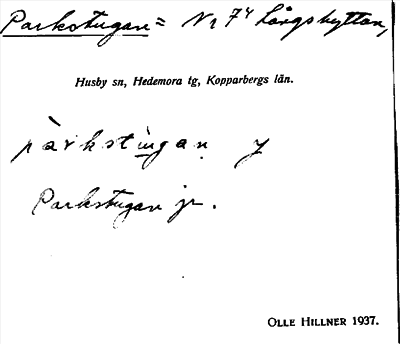 Parkstugan = Nr 74 Långshyttan,
Husby sn, Hedemora tg, Kopparbergs län.
pàrkstùgan y
Parkstugan jr.
OLLE HILLNER 1937.